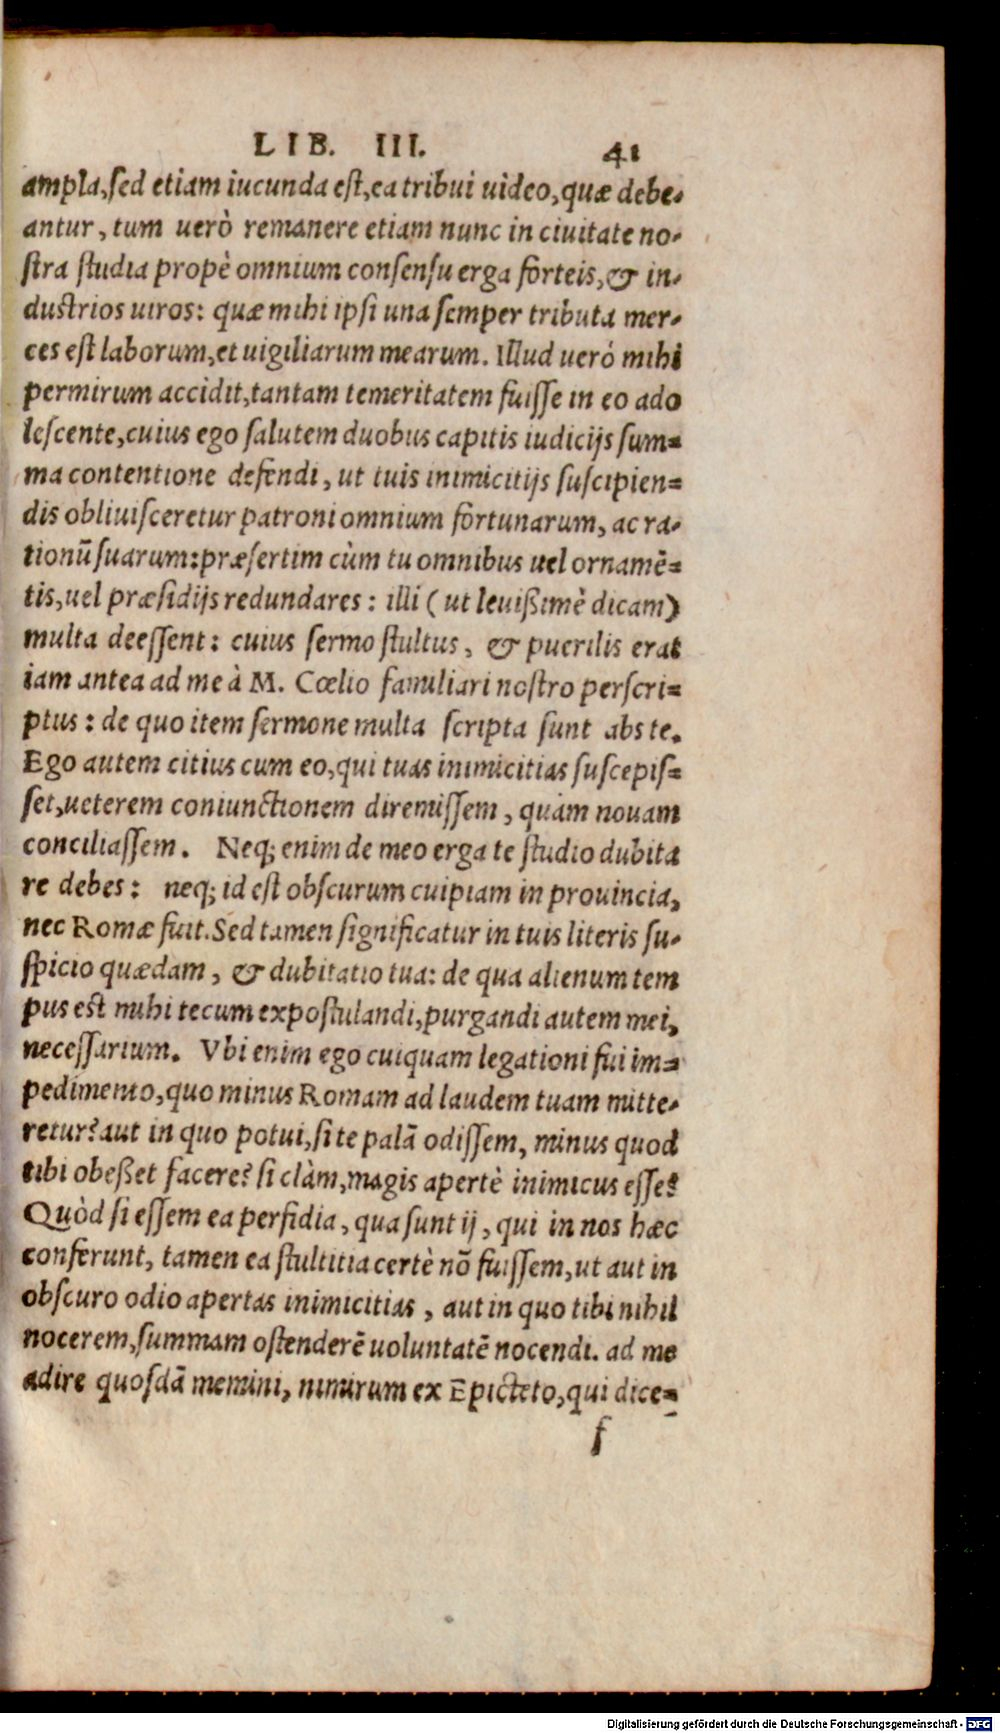 LIB. III. 41
ampla, sed etiam iucunda est, ea tribui uideo, quæ debe-
antur, tum uerò remanere etiam nunc in ciuitate no-
stra studia propè omnium consensu erga forteis, & in-
dustrios uiros: quæ mihi ipsi una semper tributa mer-
ces est laborum, et uigiliarum mearum. Illud ueró mihi
permirum accidit, tantam temeritatem fuisse in eo ado
lescente, cuius ego salutem duobus capitis iudicijs sum-
ma contentione defendi, ut tuis inimicitijs suscipien-
dis obliuisceretur patroni omnium fortunarum, ac ra-
tionū suarum: præsertim cùm tu omnibus uel ornamē-
tis, uel præsidijs redundares: illi (ut leuißimè dicam)
multa deessent: cuius sermo stultus, & puerilis erat
iam antea ad me à M. Cœlio familiari nostro perscri-
ptus: de quo item sermone multa scripta sunt abs te.
Ego autem citius cum eo, qui tuas inimicitias suscepis-
set, ueterem coniunctionem diremissem, quàm nouam
conciliassem. Neq; enim de meo erga te studio dubita
re debes: neq; id est obscurum cuipiam in prouincia,
nec Romæ fuit. Sed tamen significatur in tuis literis su-
spicio quædam, & dubitatio tua: de qua alienum tem
pus est mihi tecum expostulandi, purgandi autem mei,
necessarium. Vbi enim ego cuiquam legationi fui im-
pedimento, quo minus Romam ad laudem tuam mitte-
retur? aut in quo potui, si te palā odissem, minus quod
tibi obeßet facere? si clàm, magis apertè inimicus esse?
Quòd si essem ea perfidia, qua sunt ij, qui in nos hæc
conferunt, tamen ea stultitia certè nō fuissem, ut aut in
obscuro odio apertas inimicitias, aut in quo tibi nihil
nocerem, summam ostenderē uoluntatē nocendi. ad me
adire quosdā memini, nimirum ex Epicteto, qui dice-
f
Digitalisierung gefördert durch die Deutsche Forschungsgemeinschaft - DFG